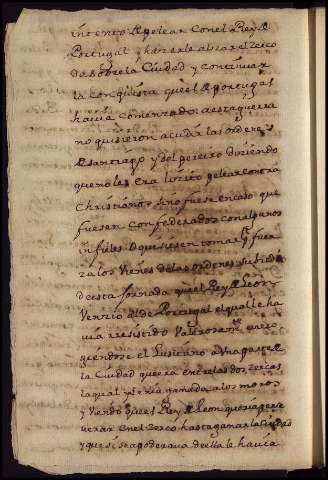 intento de pelear con el Rey de
Portugal y hazerle alzar el zerco
da sobre la Ciudad y continuar
la conquista que el de portugal
havia comenzado: a esta guerra
no quisieron acudir las ordenes
de santiago y del pereiro diziendo
que no les era lizito pelear contra
christianos sino fuese en caso que
fuesen confederados con algunos
infieles O quisiesen tomar pr fuer
za los vienes de las ordenes
de esta jornada que el Rey de Leon
Venzio al de Portugal el qual le ha
via resistido valerosamte
giendose el Lusitano a Una parte de
la Ciudad que era entre las dos zercas
la qual ya tenia ganada a los moros
y viendo que el Rey de Leon queria perse
verar en el zerco hasta ganar la ciudad
y que si se apoderava de ella le havia